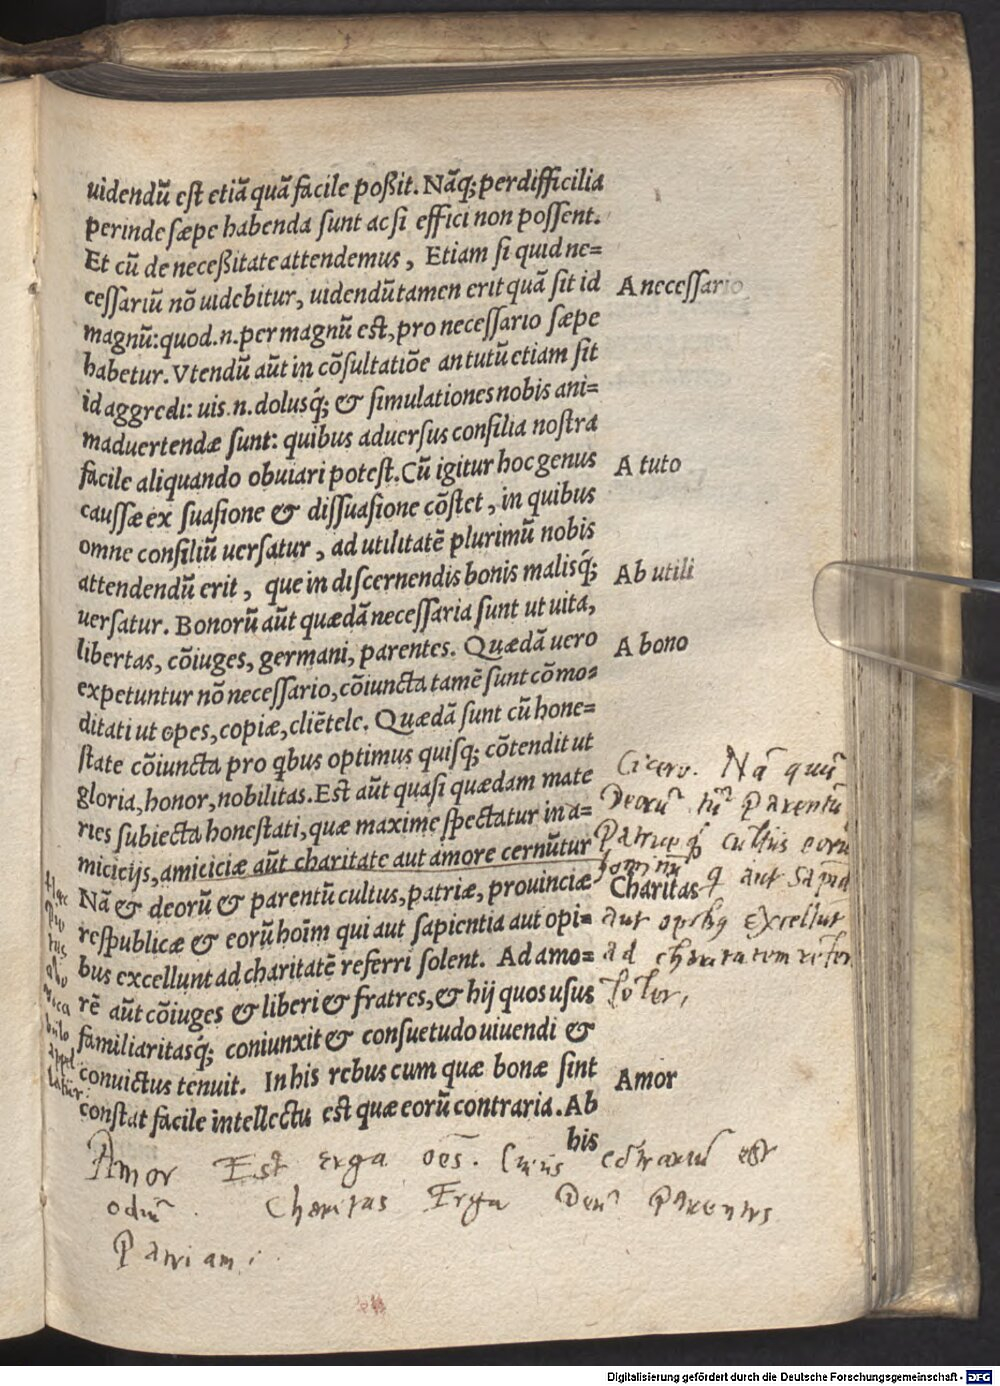 uidendũ est etiã quã facile poßit. Nãq; perdifficilia
perinde sæpe habenda sunt ac si effici non possent.
Et cũ de neceßitate attendemus, Etiam si quid ne=
cessariũ nõ uidebitur, uidendũ tamen erit quã sit id
A necessario
magnũ: quod.n. per magnũ est, pro necessario sæpe
habetur. Vtendũ aũt in cõsultatiõe an tutũ etiam sit
id aggredi: uis.n. dolusq́; & simulationes nobis ani=
maduertendæ sunt: quibus aduersus consilia nostra
facile aliquando obuiari potest. Cũ igitur hoc genus
A tuto
caussæ ex suasione & dissuasione cõstet, in quibus
omne consiliũ uersatur, ad utilitatẽ plurimũ nobis
attendendũ erit, que in discernendis bonis malisq́;
Ab utili
uersatur. Bonorũ aũt quædã necessaria sunt ut uita,
libertas, cõiuges, germani, parentes. Quædã uero
A bono
expetuntur nõ necessario, cõiuncta tamẽ sunt cõmo=
ditati ut opes, copiæ, cliẽtele. Quædã sunt cũ hone=
state cõiuncta pro qbus optimus quisq; cõtendit ut
gloria, honor, nobilitas. Est aũt quasi quædam mate
ries subiecta honestati, quæ maxime spectatur in a=
micicijs, amiciciæ aũt charitate aut amore cernũtur
Nã & deorũ & parentũ cultus, patriæ, prouinciæ
Charitas
respublicæ & eorũ hoĩm qui aut sapientia aut opi=
bus excellunt ad charitatẽ referri solent. Ad amo=
rẽ aũt cõiuges & liberi & fratres, & hij quos usus
familiaritasq́; coniunxit & consuetudo uiuendi &
conuictus tenuit. In his rebus cum quæ bonæ sint
Amor
constat facile intellectu est quæ eorũ contraria. Ab
bis
Cicero. Nã
Deorũ Parentũ
Patriæ q́ cultus eorũ
hominũ q aut
aut opibq excellũt
ad charitatem
solet,
Amor Est erga oẽs. Cuius cõtrariũ est
odiũ. Charitas Erga Deũ Parentes
Patriam.